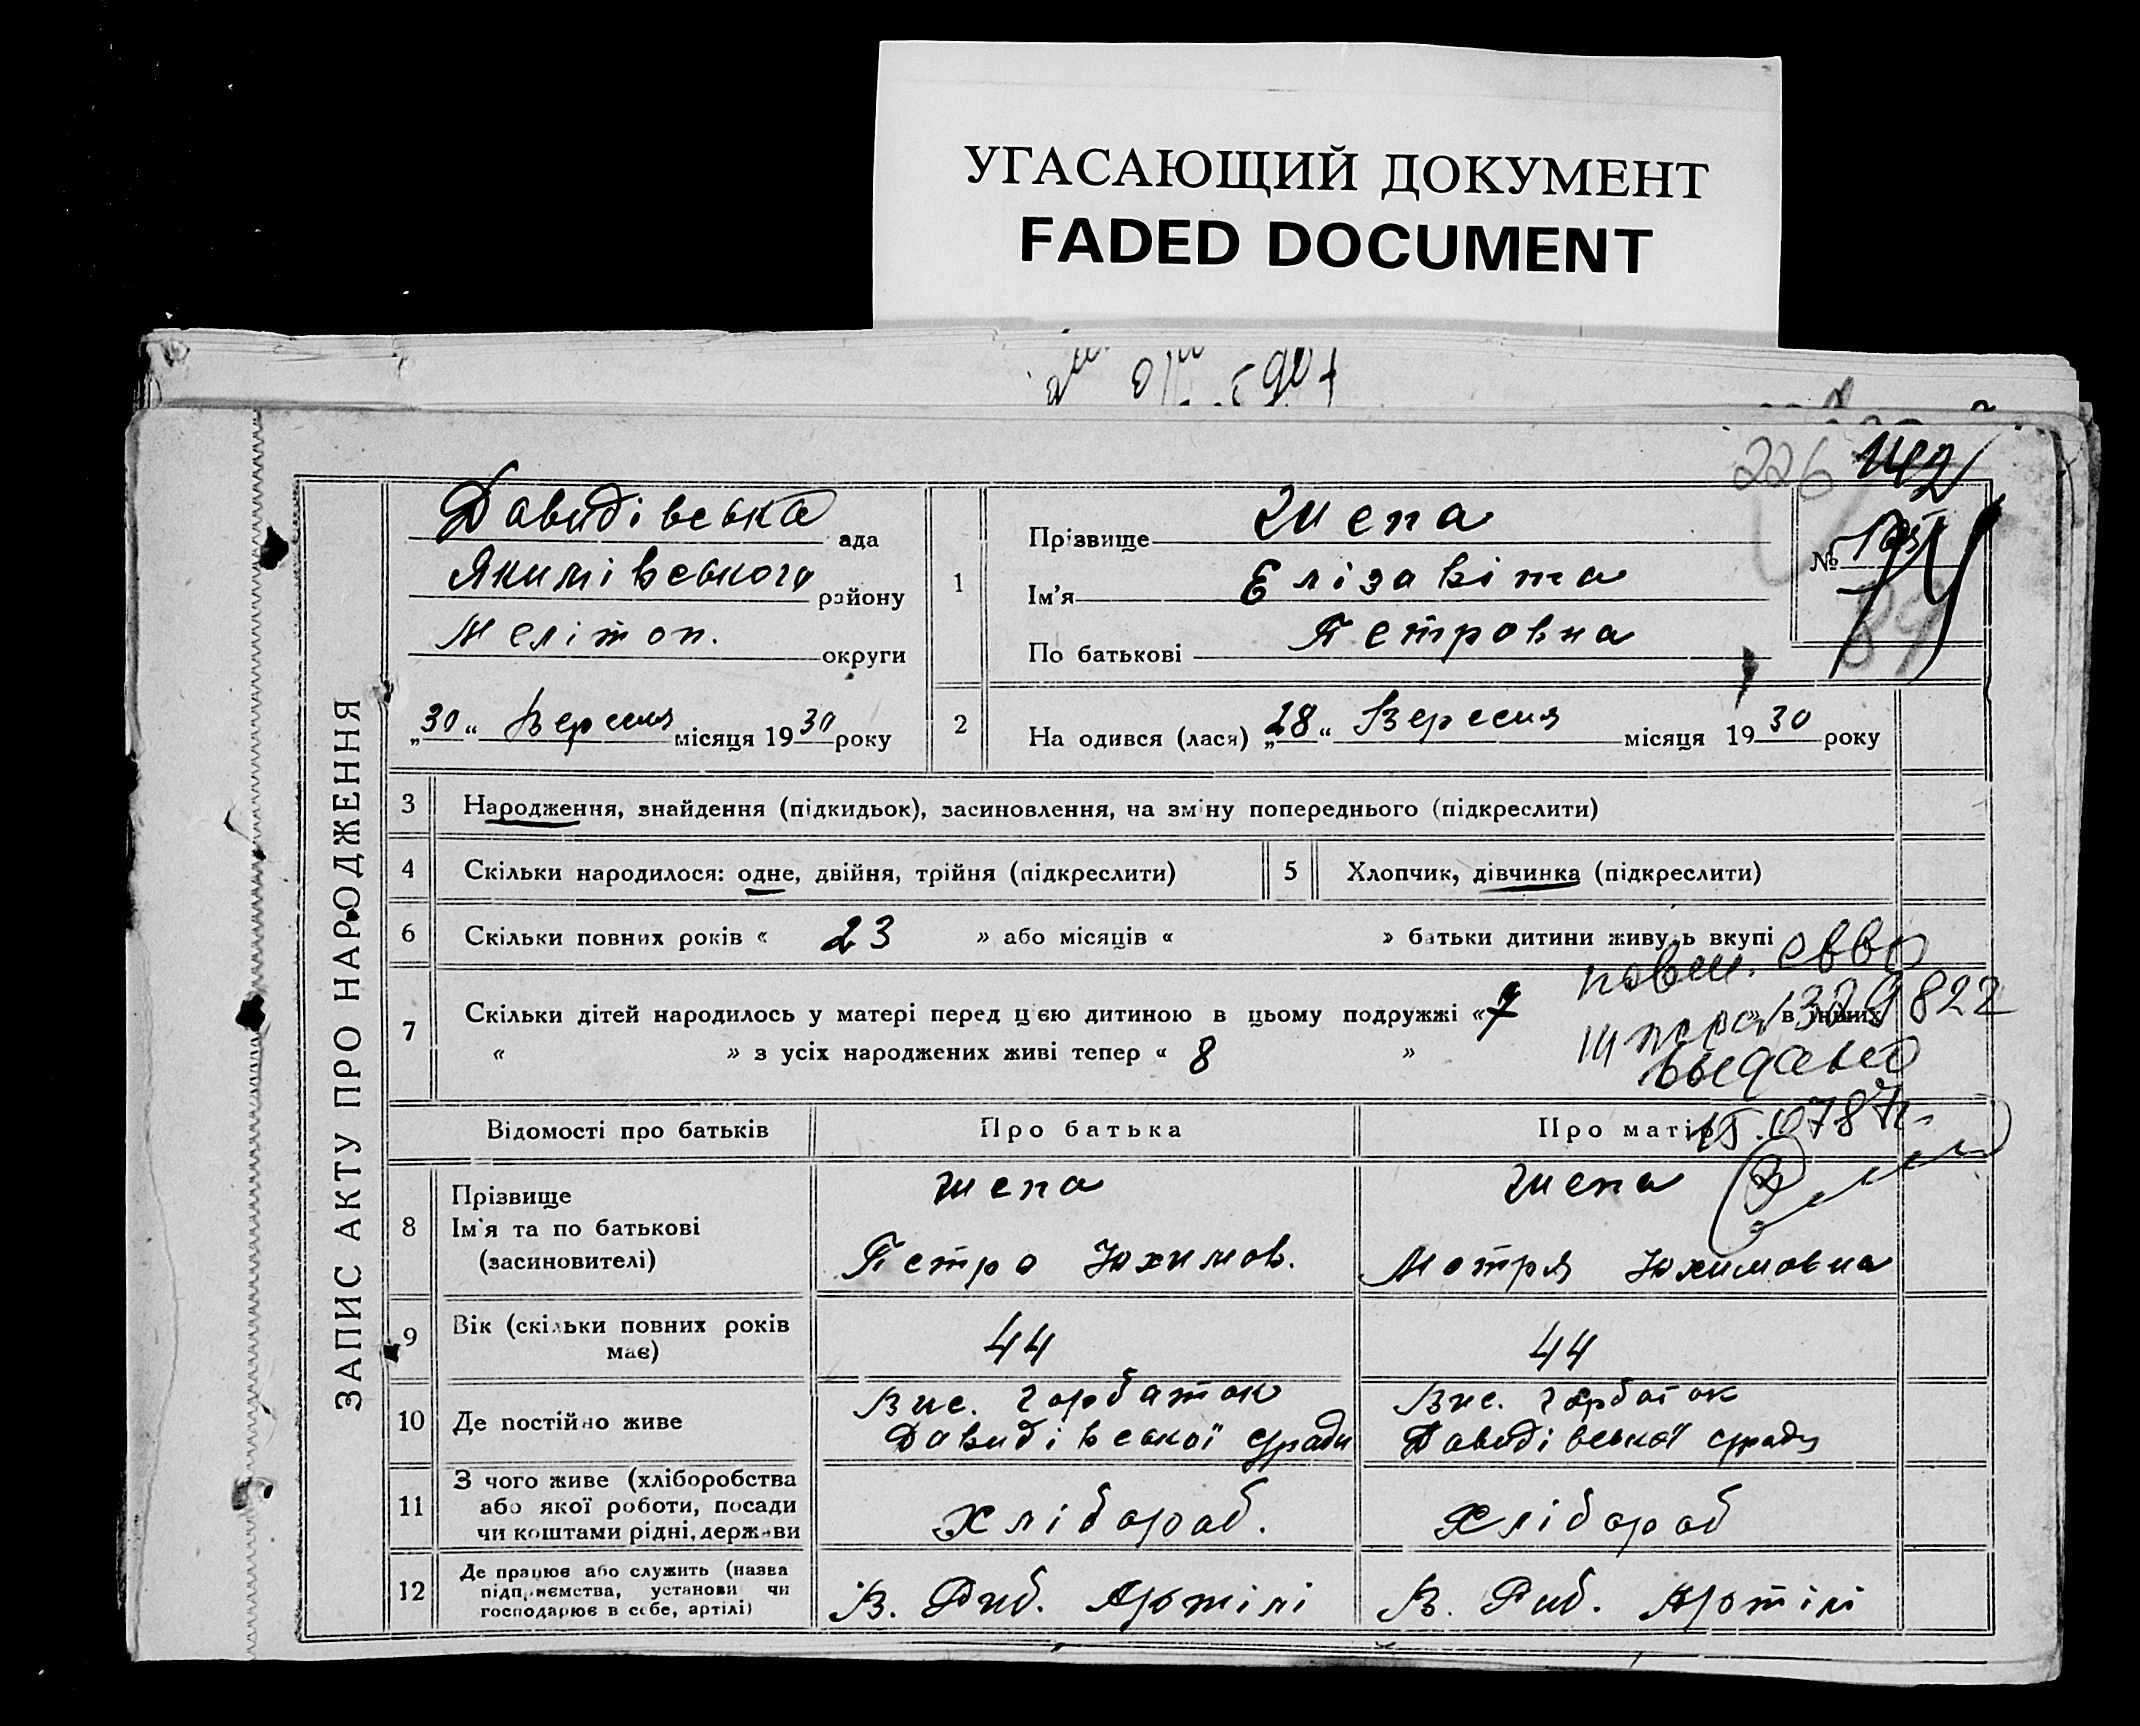 УГАСАЮЩИЙ ДОКУМЕНТ
FADED DOCUMENT
226 142
ЗАПИС АКТУ ПРО НАРОДЖЕННЯ
Давидівська ада
Якимівського району
Меліто п. округи
„30“ Вересня місяця 1930 року
1
Прізвище Шепа
Ім'я Елізавіта
По батькові Петровна
№
89
2
На одився (лася) „28“ Вересня місяця 1930 року
3 Народження, знайдення (підкидьок), засиновлення, на зміну попереднього (підкреслити)
4 Скільки народилося: одне, двійня, трійня (підкреслити)
5 Хлопчик, дівчинка (підкреслити)
6 Скільки повних років « 23 » або місяців « » батьки дитини живуть вкупі
7 Скільки дітей народилось у матері перед цією дитиною в цьому подружжі «7 » в інших
« » з усіх народжених живі тепер « 8 »
329822
выдано
Відомості про батьків
Про батька
Про матір
8 Прізвище
Ім'я та по батькові
(засиновителі)
Шепа
Петро Юхимов.
Шепа
Мотря Юхимовна
9 Вік (скільки повних років
має)
44
44
10 Де постійно живе
Вис. Горбаток
Давидівської с/ради
Вис. Горбаток
Давидівської с/ради
11 З чого живе (хліборобства
або якої роботи, посади
чи коштами рідні, держави
Хлібороб.
Хлібороб
12 Де працює або служить (назва
підприємства, установи чи
господарює в себе, артілі)
В. Риб. Артілі
В. Риб. Артілі